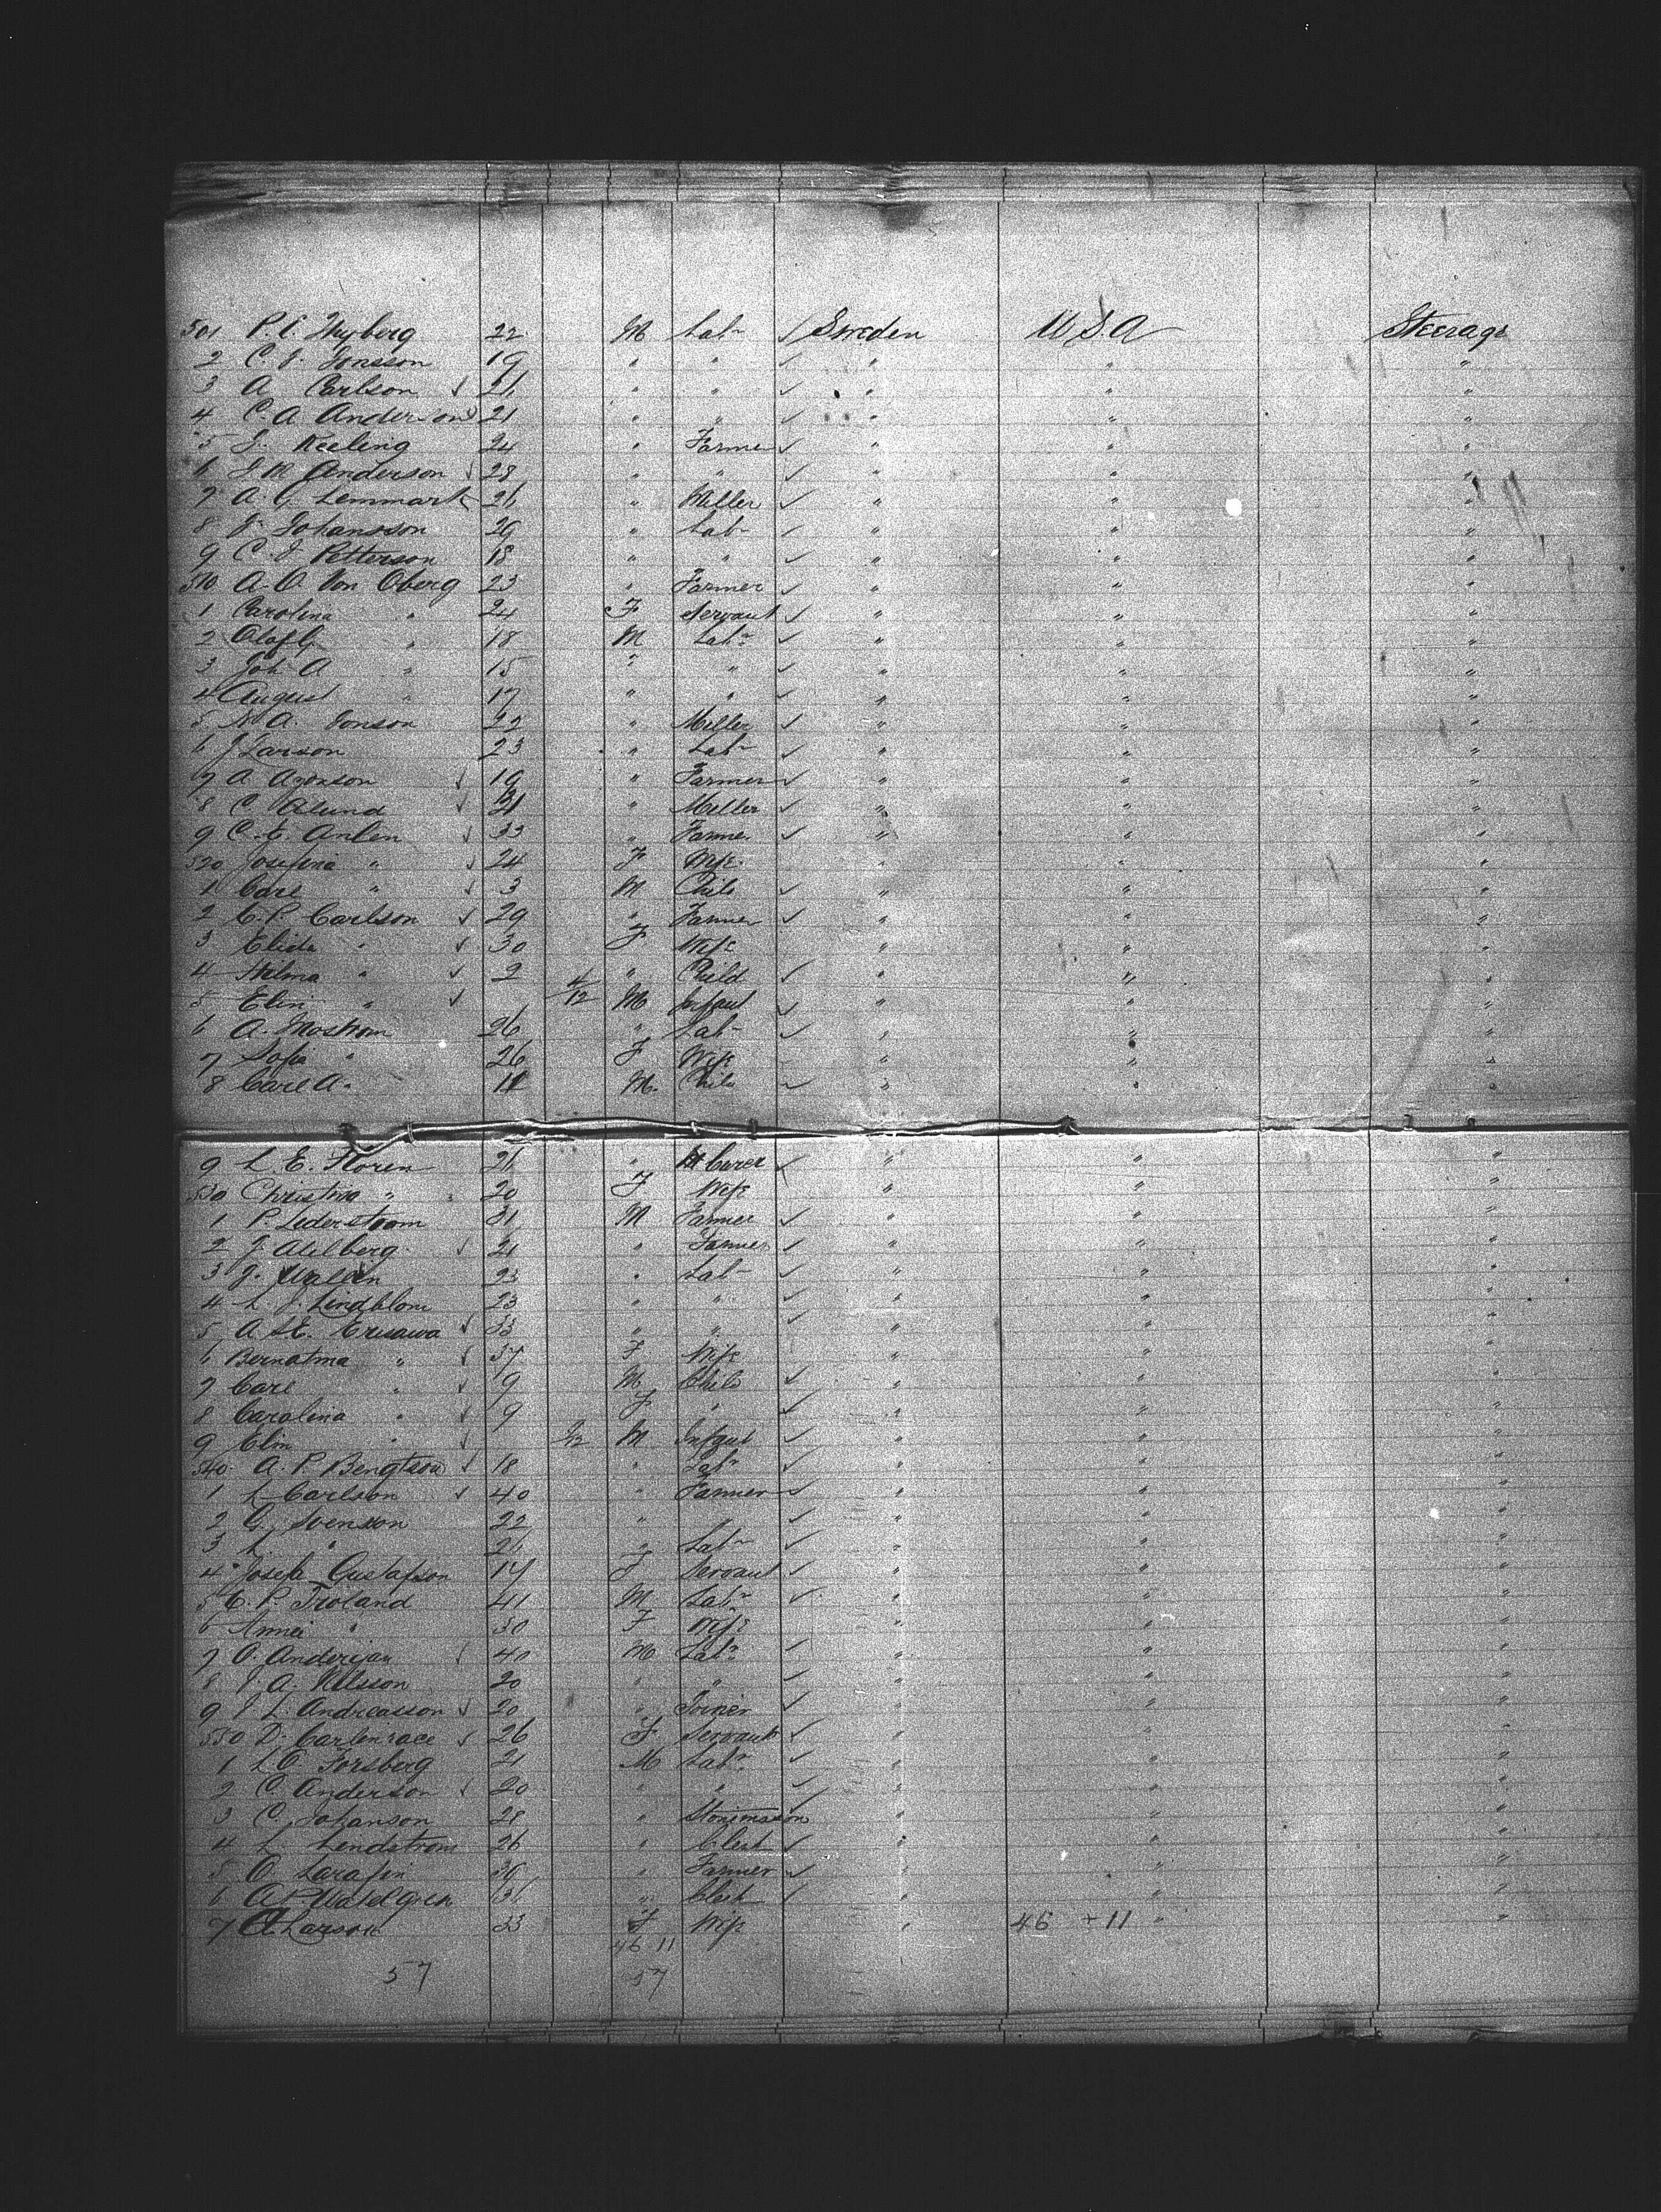 501 P. C. Thyberg 22 M Labr ✓ Sweden U S A Steerage
2 C. J. Jonsson 19 " " ✓ " " "
3 A Carlson ✓ 21 " " ✓ " " "
4 C. A. Anderson ✓ 21 " " ✓ " " "
5 J. Keeling 24 " Farmer ✓ " " "
6 J. M. Anderson ✓ 28 " " ✓ " " "
7 A. G. Lemmark 26 " Miller ✓ " " "
8 J. Johansson 29 " Labr ✓ " " "
9 C. J. Petterson 18 " " ✓ " " "
510 A. O. Von Oberg 23 " Farmer ✓ " " "
1 Carolina " 24 F Servant ✓ " " "
2 Olaf G " 18 M Labr ✓ " " "
3 Joh A " 15 " " ✓ " " "
4 August " 17 " " ✓ " " "
5 N. A. Jonson 22 " Miller ✓ " " "
6 J Larson 23 " Labr ✓ " " "
7 A Aronson ✓ 19 " Farmer ✓ " " "
8 C Alund ✓ 21 " Miller ✓ " " "
9 C. E. Anlen ✓ 33 " Farmer ✓ " " "
520 Josefina " ✓ 24 F Wife " " "
1 Carl " ✓ 3 M Child ✓ " " "
2 C. P. Carlson ✓ 29 " Farmer ✓ " " "
3 Elida " ✓ 30 F Wife " " "
4 Helma " ✓ 2 " Child ✓ " " "
5 Elin " ✓ /12 M Infant ✓ " " "
6 A. Mostrom 26 " Labr ✓ " " "
7 Sofia " 26 F Wife " " "
8 Carl A. 11 M. Child ✓ " " "
9 L. E. Floren 21 " ✓ " " "
530 Christina " 20 F Wife " " "
1 P. Lederstrom 31 M Farmer ✓ " " "
2 J. Ahlberg ✓ 21 " Farmer ✓ " " "
3 J. Wallin 23 " Labr ✓ " " "
4 L. J. Lindblom 23 " " ✓ " " "
5 A. ✓ 33 " " ✓ " " "
6 " ✓ 37 F Wife " " "
7 Carl " ✓ 9 M Child ✓ " " "
8 Carolina " ✓ 9 F " ✓ " " "
9 Elin " ✓ /12 M Infant ✓ " " "
540 A. P. Bengtson ✓ 18 " Labr ✓ " " "
1 L Carlson ✓ 40 " Farmer ✓ " " "
2 G. Svenson 22 " ✓ " " "
3 L. " 21 " Labr ✓ " " "
4 Josefa Gustafson 17 F Servant ✓ " " "
5 C. P. Troland 41 M Labr ✓ " " "
6 Anna " 30 F Wife " " "
7 O. Anderjan ✓ 40 M Labr ✓ " " "
8 J. A. Nilsson 20 " " ✓ " " "
9 J L. Andreasson ✓ 20 " Joiner ✓ " " "
550 D. ✓ 26 F. Servant ✓ " " "
1 L O. Forsberg 21 M Labr ✓ " " "
2 C. Anderson ✓ 20 " " ✓ " " "
3 C. Johanson 28 " Stonemason " " "
4 L Lendstrom 26 " Clerk ✓ " " "
5 O. 36 " Farmer ✓ " " "
6 A. P. Wahlgren 31 " Clerk ✓ " " "
7 A Larson 33 F Wife " 46 + 11 " "
46 11
57 57